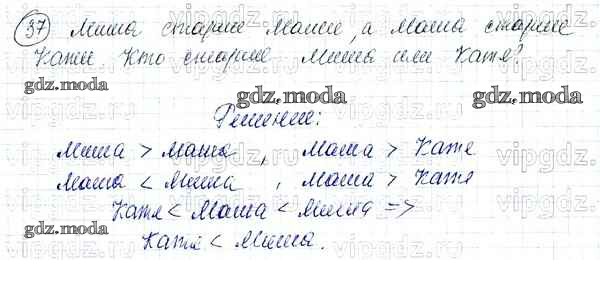 37 Миша старше Маши, а Маша старше
Кати. Кто старше Миша или Катя?
gdz.moda
gdz.moda gdz.moda
Решение:
Миша > Маша, Маша > Катя
Маша < Миша, Маша > Катя
Катя < Маша < Миша =>
gdz.moda
Катя < Миша.
gdz.moda
vipgdz.ru